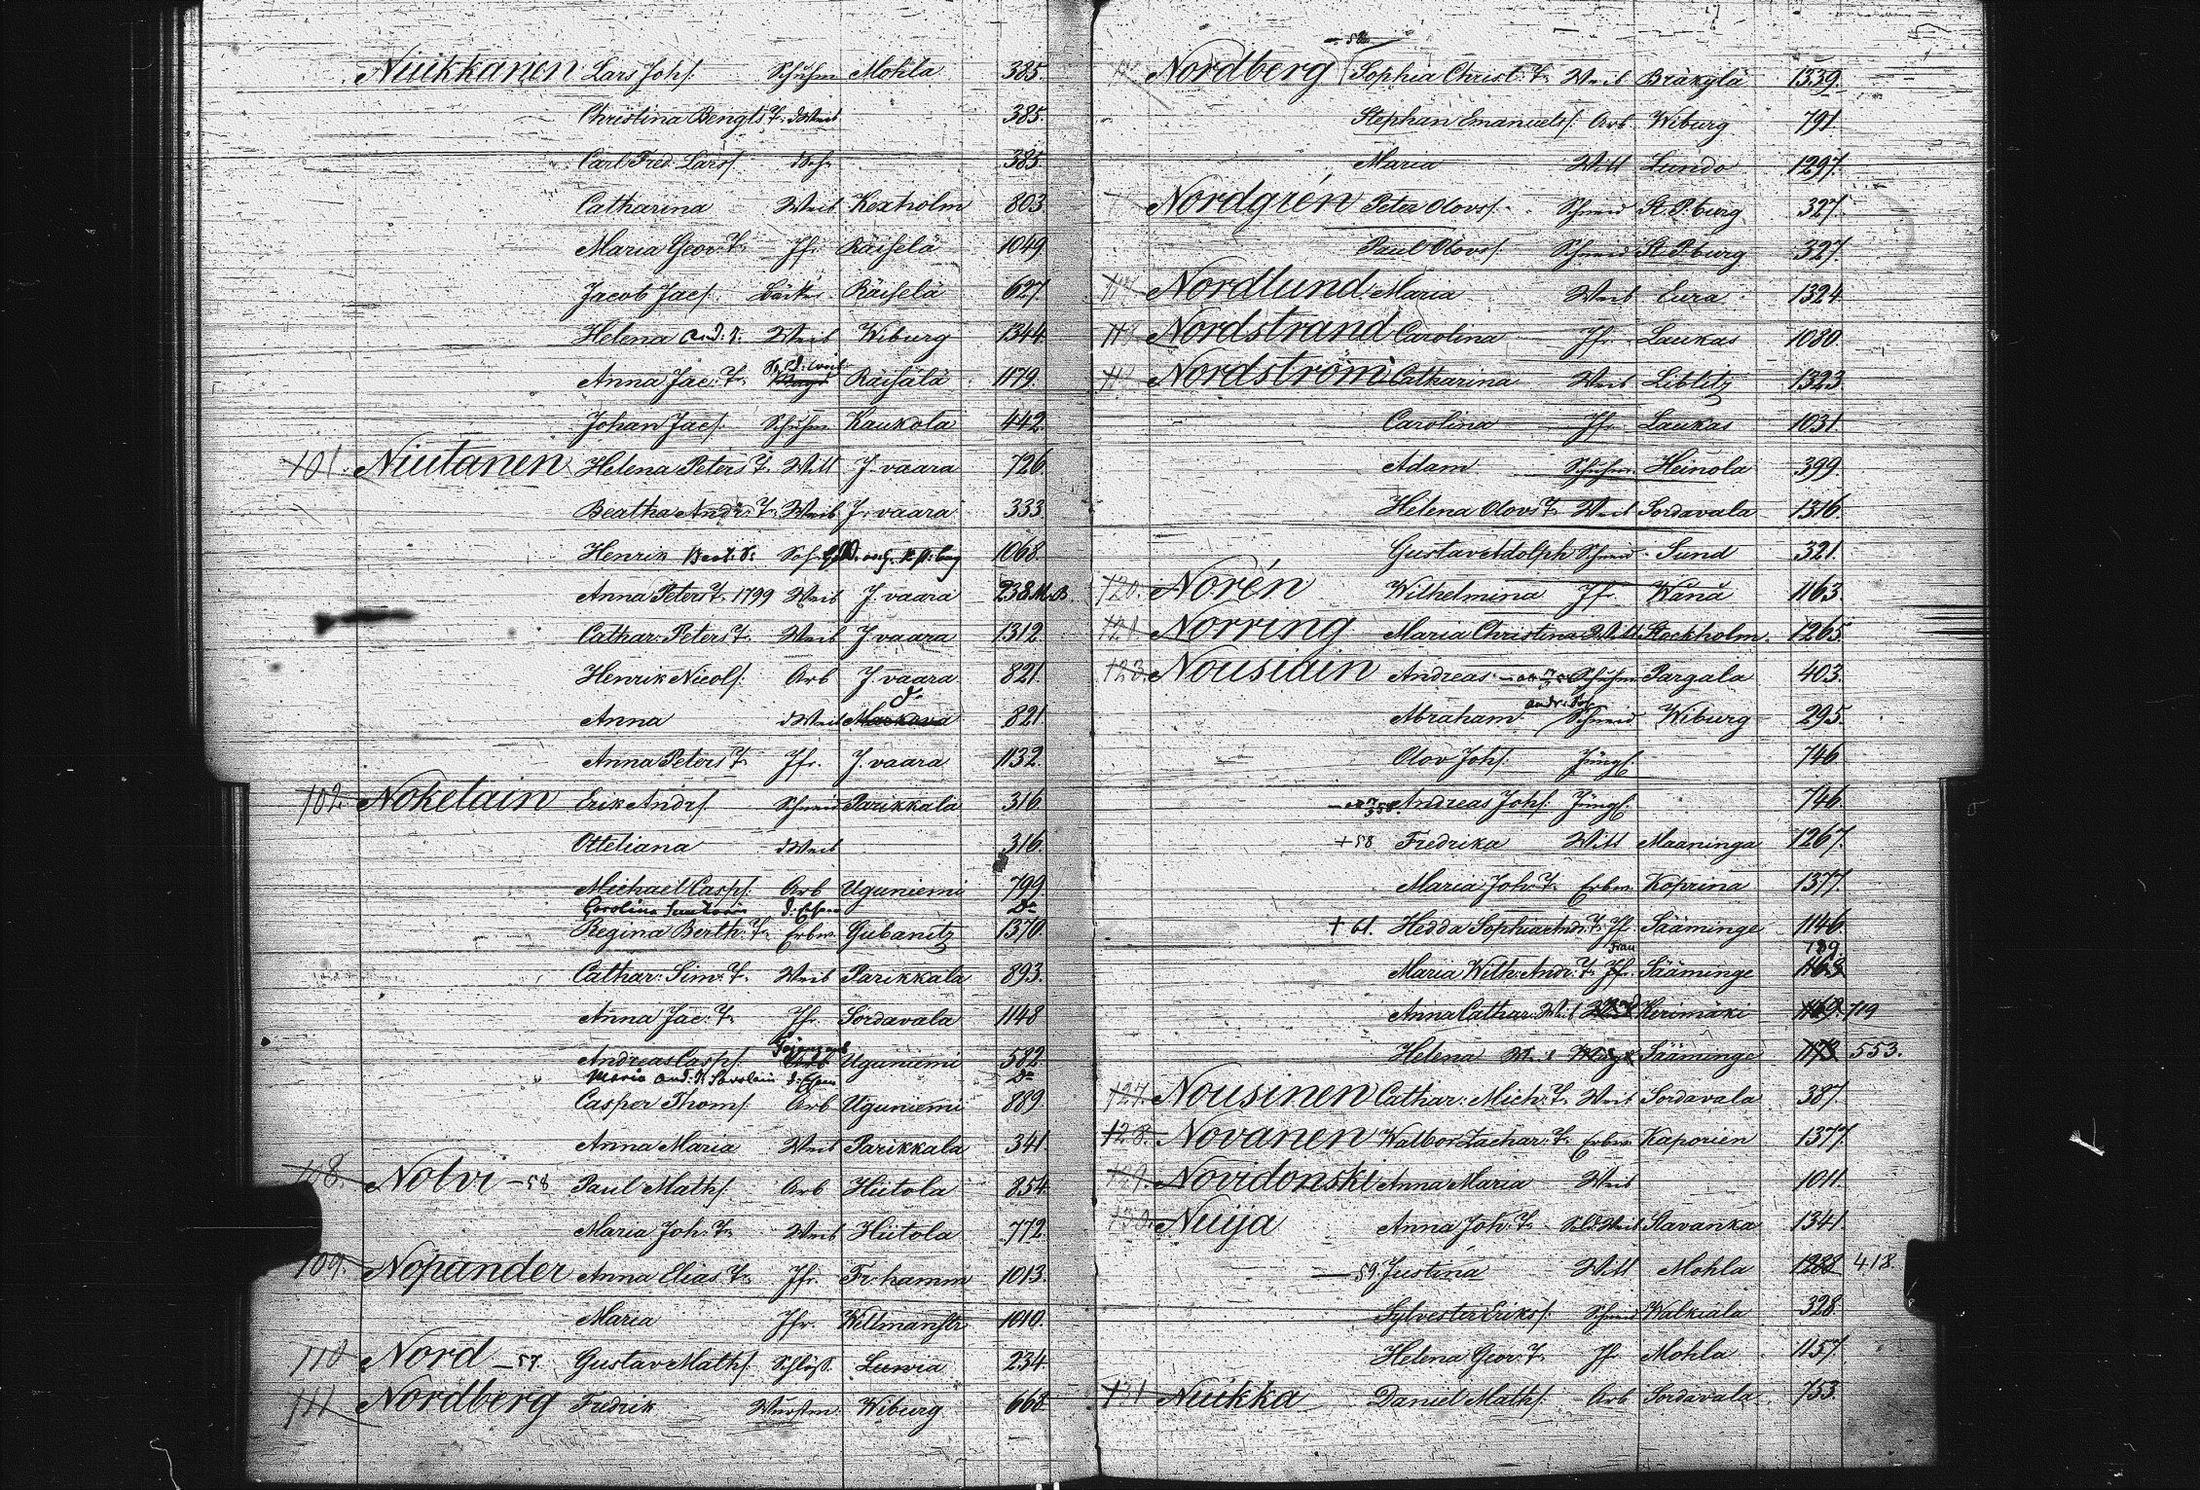 Niukkanen Lars Johs. Schuhm Mohla 385.
Christina Bengts T. d Weib 385.
Carl Fred. Larss. 385.
Catharina Weib Kexholm 803.
Maria Geor. T. Jfr. Räisälä 1049
Jacob Jacs. Bäcker Räisälä 627.
Helena And. T. Weib Wiburg 1344
Anna Jac. T. Räisälä 1179.
Johan Jacs. Schuhm Kaukola 442.
101. Niutanen Helena Peters T. Witt J. vaara 726.
Beatha Andr. T. Weib J. vaara 333
Henrik 1068.
Anna Peters T. 1799 Weib J. vaara 238.
Cathar. Peters T. Weib J. vaara 1312
Henrik Nicols. Arb J. vaara 821.
Anna d Weib 821
Anna Peters T. Jfr. J. vaara 1132.
102. Noketain Erik Andrs. Schneid Parikkala 316
Otteliana d Weib 316.
Michael Casps. Arb Uguniemi 799
Regina Berth. T. Erbw Gubanitz 1370.
Cathar. Sim. T. Weib Parikkala 893.
Anna Jac. T. Jfr. Sordavala 1148
Andreas Casps. Uguniemi 582
Casper Thoms. Arb Uguniemi 889
Anna Maria Weib Parikkala 341
108. Nolvi - 58 Paul Maths. Arb Hiitola 854
Maria Joh. T. Weib Hiitola 772.
109. Nopander Anna Elias T. Jfr. Fr. hamm 1013.
Maria Jfr. Willmanstr 1010.
110 Nord - 57. Gustav Maths. Schlöss. Luvia 234
111 Nordberg Fredrik Wurstm. Wiburg 668
Nordberg Sophia Christ. T. Weib Bräkylä 1339.
Stephan Emanuels. Arb Wiburg 791
Maria Witt Lundo 1297.
Nordgrén Peter Olovs. Schneid St. P. burg. 327.
Paul Olovs. Schneid St. P. burg 327.
Nordlund Maria Weib Eura 1324
Nordstrand Carolina Jfr. Laukas 1080
Nordström Catharina Weib Liblitz 1323
Carolina Jfr. Laukas 1031.
Adam Schuhm. Heinola 399.
Helena Olovs T. Weib Sordavala 1316.
Gustav Adolph Schneid Sund 321.
120. Norén Wilhelmina Jfr. Wånå 1163
121 Norring Maria Christina Witt Stockholm. 1265
123. Nousiain Andreas Schuhm Pargala 403.
Abraham Schneid Wiburg 295.
Olov Johs. Jüngl. 746
Andreas Johs. Jüngl. 746.
+58 Fredrika Witt Maaninga 1267.
Maria Joh. T. Erbw. Koprina 1377.
+ 61. Hedda Sophia Andr. T. Jfr Sääminge 1146.
Maria Wilh. Andr. T. Sääminge 789
Anna Cathar. Kerimäki 719
Helena Sääminge 553.
127. Nousinen Cathar. Mich. T. Weib Sordavala 387.
128. Novanen Walbor Zachar. T. Erbw Kaporien 1377.
129. Novidonski Anna Maria Weib 1011.
130. Nuija Anna Joh. T. Sold Weib Slavanka 1341.
- 59. Justina Witt Mohla 418.
Sylvester Eriks. Schneid Walkiala 328.
Helena Geor. T. Jfr Mohla 1157.
131 Nuikka Daniel Maths. Arb Sordavala 753.